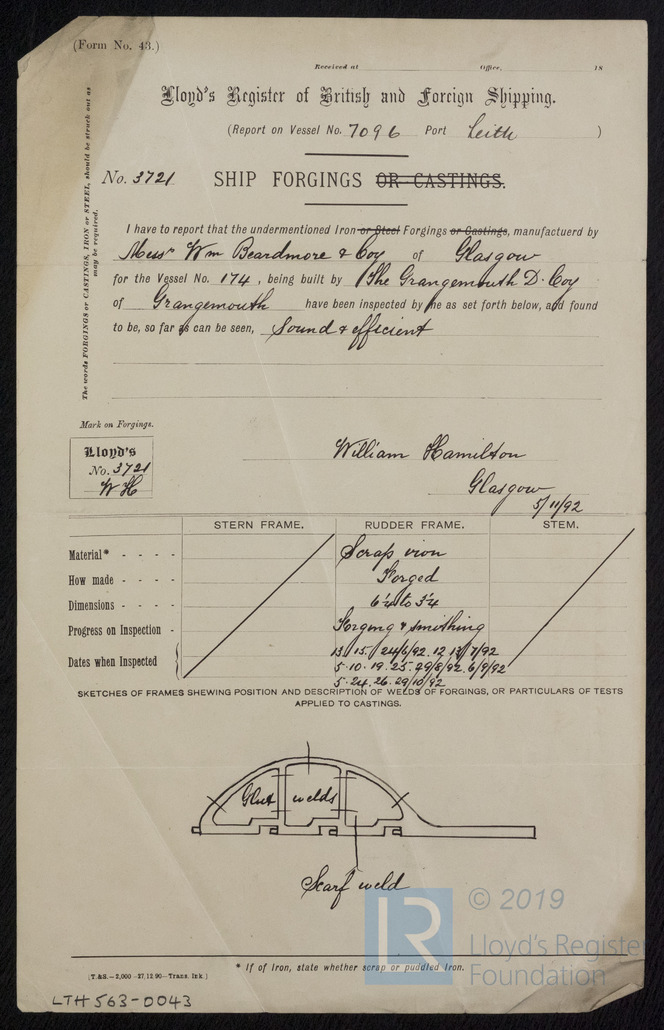 (Form No. 43.)
Received at Office, 18
Lloyd's Register of British and Foreign Shipping.
(Report on Vessel No. 7096 Port Leith )
No. 3721 SHIP FORGINGS OR CASTINGS.
The words FORGINGS or CASTINGS, IRON or STEEL, should be struck out as
may be required.
I have to report that the undermentioned Iron or Steel Forgings or Castings, manufactuerd by
Messrs Wm Beardmore & Coy of Glasgow
for the Vessel No. 174, being built by The Grangemouth D. Coy
of Grangemouth have been inspected by me as set forth below, and found
to be, so far as can be seen, Sound & efficient
Mark on Forgings.
Lloyd's
No. 3721
WH
William Hamilton
Glasgow
5/11/92
STERN FRAME. RUDDER FRAME. STEM.
Material* - - - - Scrap iron
How made - - - - Forged
Dimensions - - - - 6¼ to 3¼
Progress on Inspection - Forging & smithing
Dates when Inspected 13. 15. 24/6/92. 12. 13/7/92
5. 10. 19. 25. 29/8/92. 6/9/92
5. 24. 26. 29/10/92
SKETCHES OF FRAMES SHEWING POSITION AND DESCRIPTION OF WELDS OF FORGINGS, OR PARTICULARS OF TESTS
APPLIED TO CASTINGS.
Glut welds
Scarf weld
© 2019
LR Lloyd's Register
Foundation
* If of Iron, state whether scrap or puddled Iron.
[T.&S.—2,000—27,12,90—Trans. Ink.]
LTH563-0043